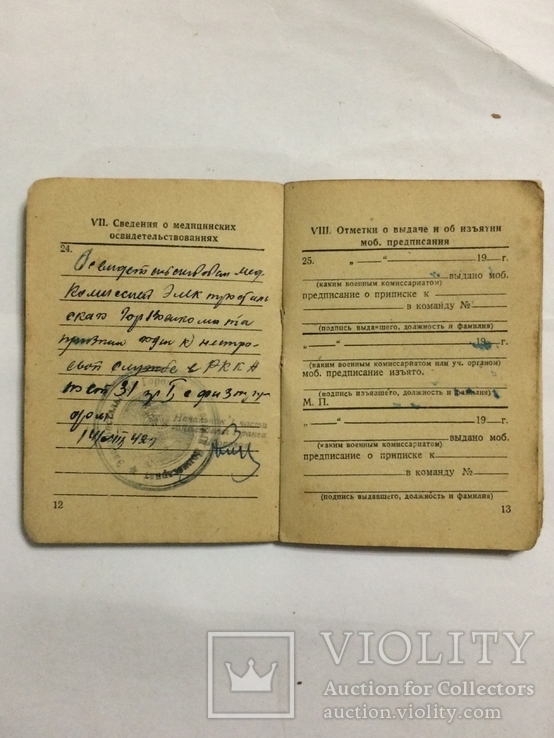 VII. Сведения о медицинских
освидетельствованиях
24.
Освидетельствован мед.
Комиссией
Горвоенкомата
признан годен к нестро-
евой службе в РККА
ст 31 гр I с физ
Начальник части
12
VIII. Отметки о выдаче и об изъятии
моб. предписания
25. „ — “ — 19 — г.
выдано моб.
(каким военным комиссариатом)
предписание о приписке к
в команду №
(подпись выдавшего, должность и фамилия)
„ — “ — 19 — г.
(каким военным комиссариатом или уч. органом)
моб. предписание изъято.
(подпись изъявшего, должность и фамилия)
М. П.
„ — “ — 19 — г.
выдано моб.
(каким военным комиссариатом)
предписание о приписке к
в команду №
(подпись выдавшего, должность и фамилия)
13
VIOLITY
Auction for Collectors
auction.violity.com